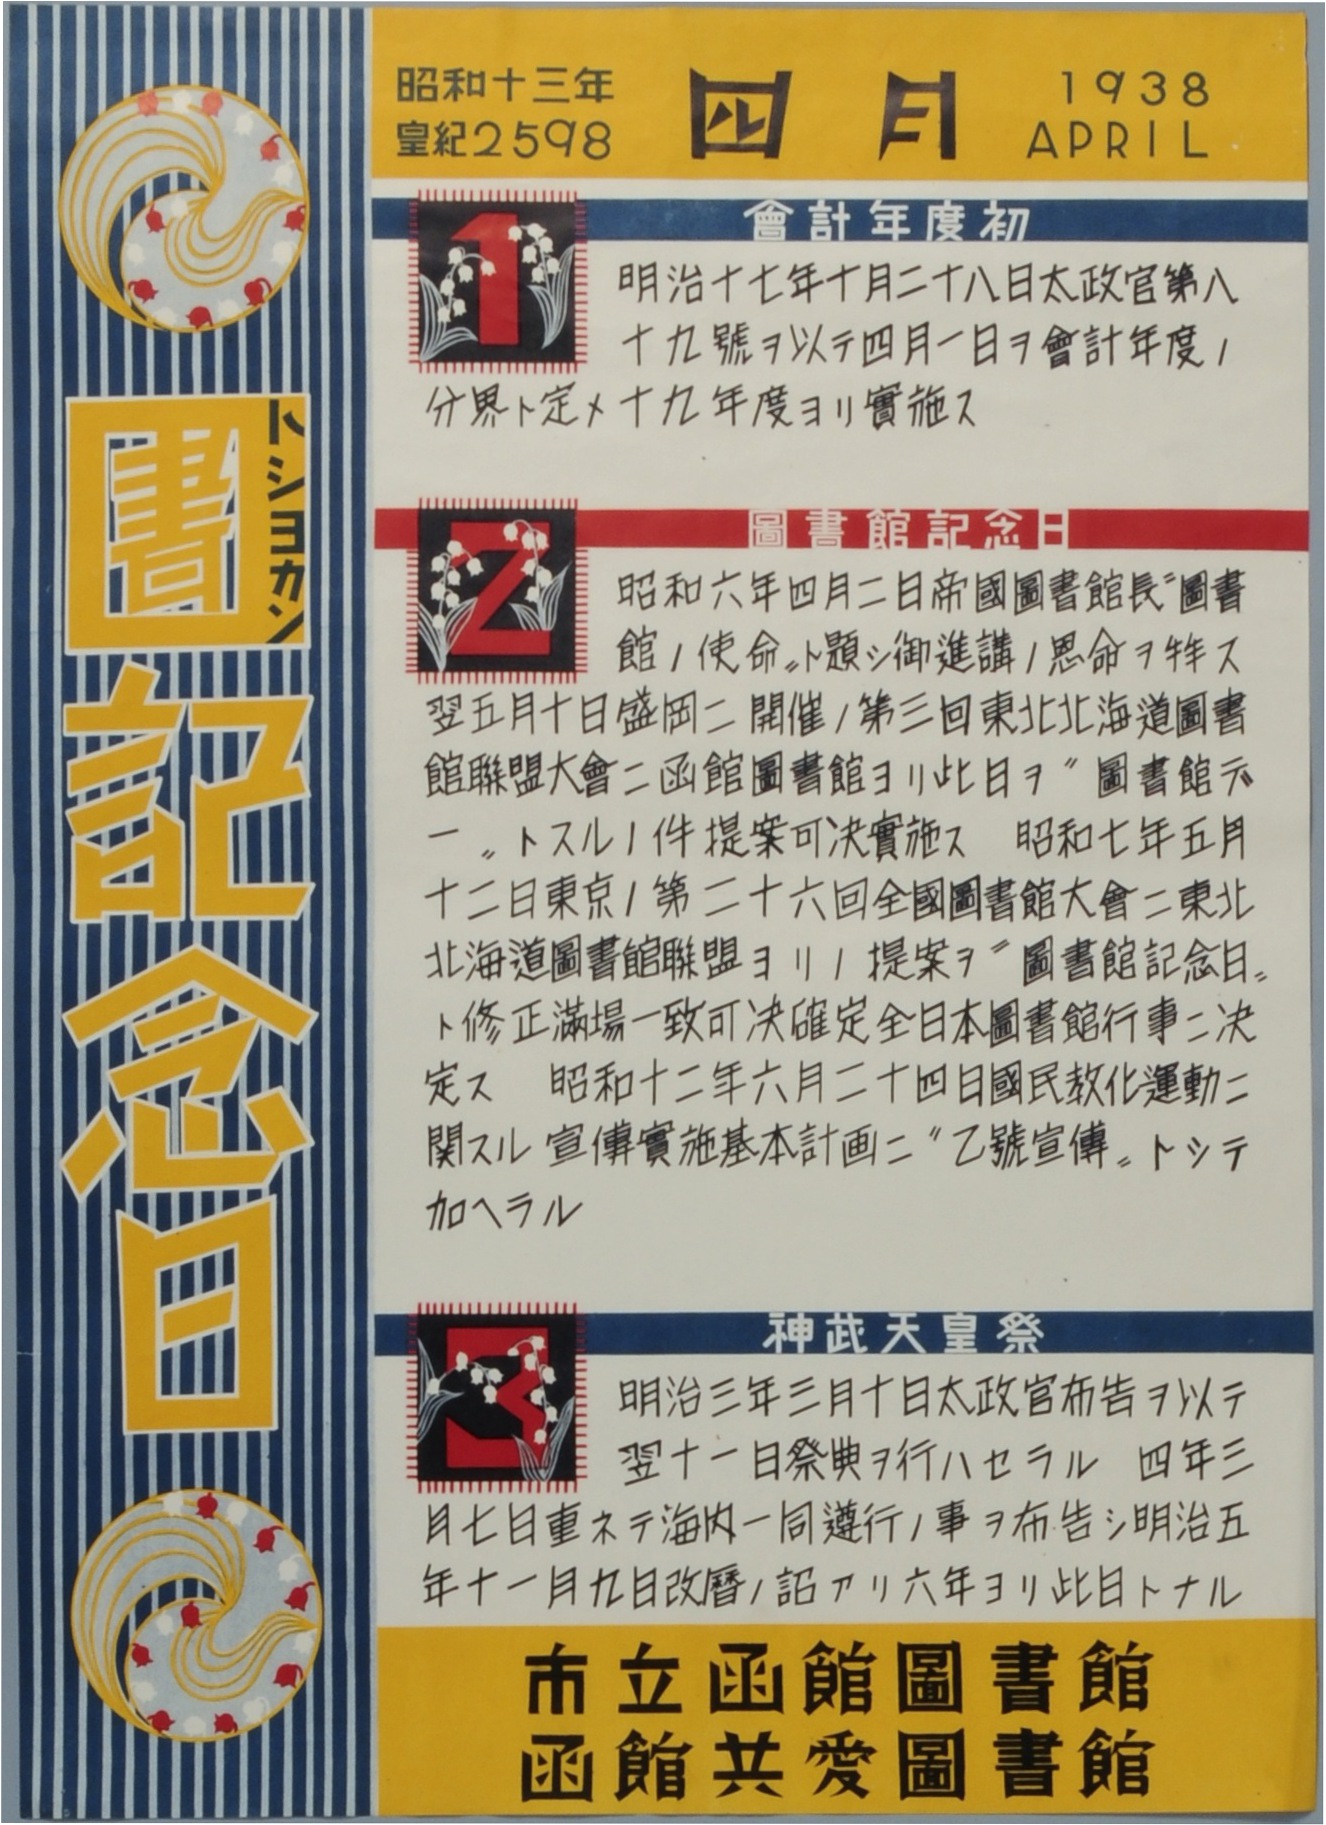 昭和十三年
皇紀2598
四月
1938
APRIL
圕
トシヨカン
記念日
會計年度初
1
明治十七年十月二十八日太政官第八
十九號ヲ以テ四月一日ヲ會計年度ノ
分界ト定メ十九年度ヨリ實施ス
圖書館記念日
2
昭和六年四月二日帝國圖書館長〝圖書
館ノ使命〟ト題シ御進講ノ恩命ヲ拝ス
翌五月十日盛岡ニ開催ノ第三回東北北海道圖書
館聯盟大會ニ函館圖書館ヨリ此日ヲ〝圖書館デ
ー〟トスルノ件提案可決實施ス　昭和七年五月
十二日東京ノ第二十六回全國圖書館大會ニ東北
北海道圖書館聯盟ヨリノ提案ヲ〝圖書館記念日〟
ト修正滿場一致可決確定全日本圖書館行事ニ決
定ス　昭和十二年六月二十四日國民教化運動ニ
関スル宣傳實施基本計画ニ〝乙號宣傳〟トシテ
加ヘラル
神武天皇祭
3
明治三年三月十日太政官布告ヲ以テ
翌十一日祭典ヲ行ハセラル　四年三
月七日重ネテ海内一同遵行ノ事ヲ布告シ明治五
年十一月九日改曆ノ詔アリ六年ヨリ此日トナル
市立函館圖書館
函館共愛圖書館